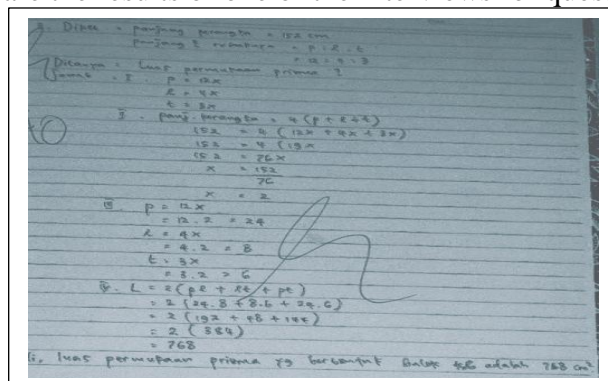 Diket = panjang kerangka = 152 cm
panjang 2 rusuknya = p : l : t
= 12 : 4 : 3
Ditanya = Luas permukaan prisma ?
Jawab = I p = 12x
l = 4x
t = 3x
II. panj. kerangka = 4 (p + l + t)
152 = 4 (12x + 4x + 3x)
152 = 4 (19x
152 = 76x
x = 152
76
x = 2
III. p = 12x
= 12 . 2 = 24
l = 4x
= 4 . 2 = 8
t = 3x
= 3 . 2 = 6
IV. L = 2 (pl + lt + pt)
= 2 (24 . 8 + 8 . 6 + 24 . 6)
= 2 (192 + 48 + 144)
= 2 (384)
= 768
luas permukaan prisma yg berbentuk Balok adalah 768 cm²